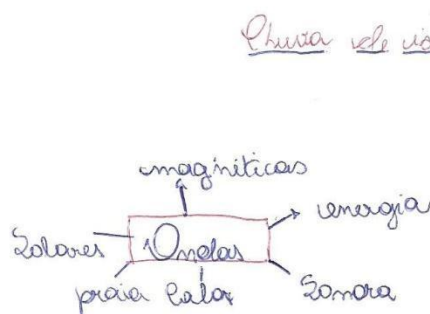 Chuva de
magnéticas
energia
Solares
Ondas
praia Calor
Sonora